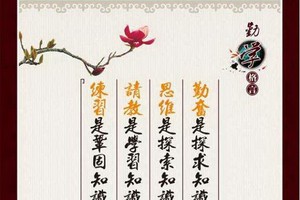 勤学格言
勤奮是探求知識
思维是探索知識
請教是學習知識
練習是鞏固知識